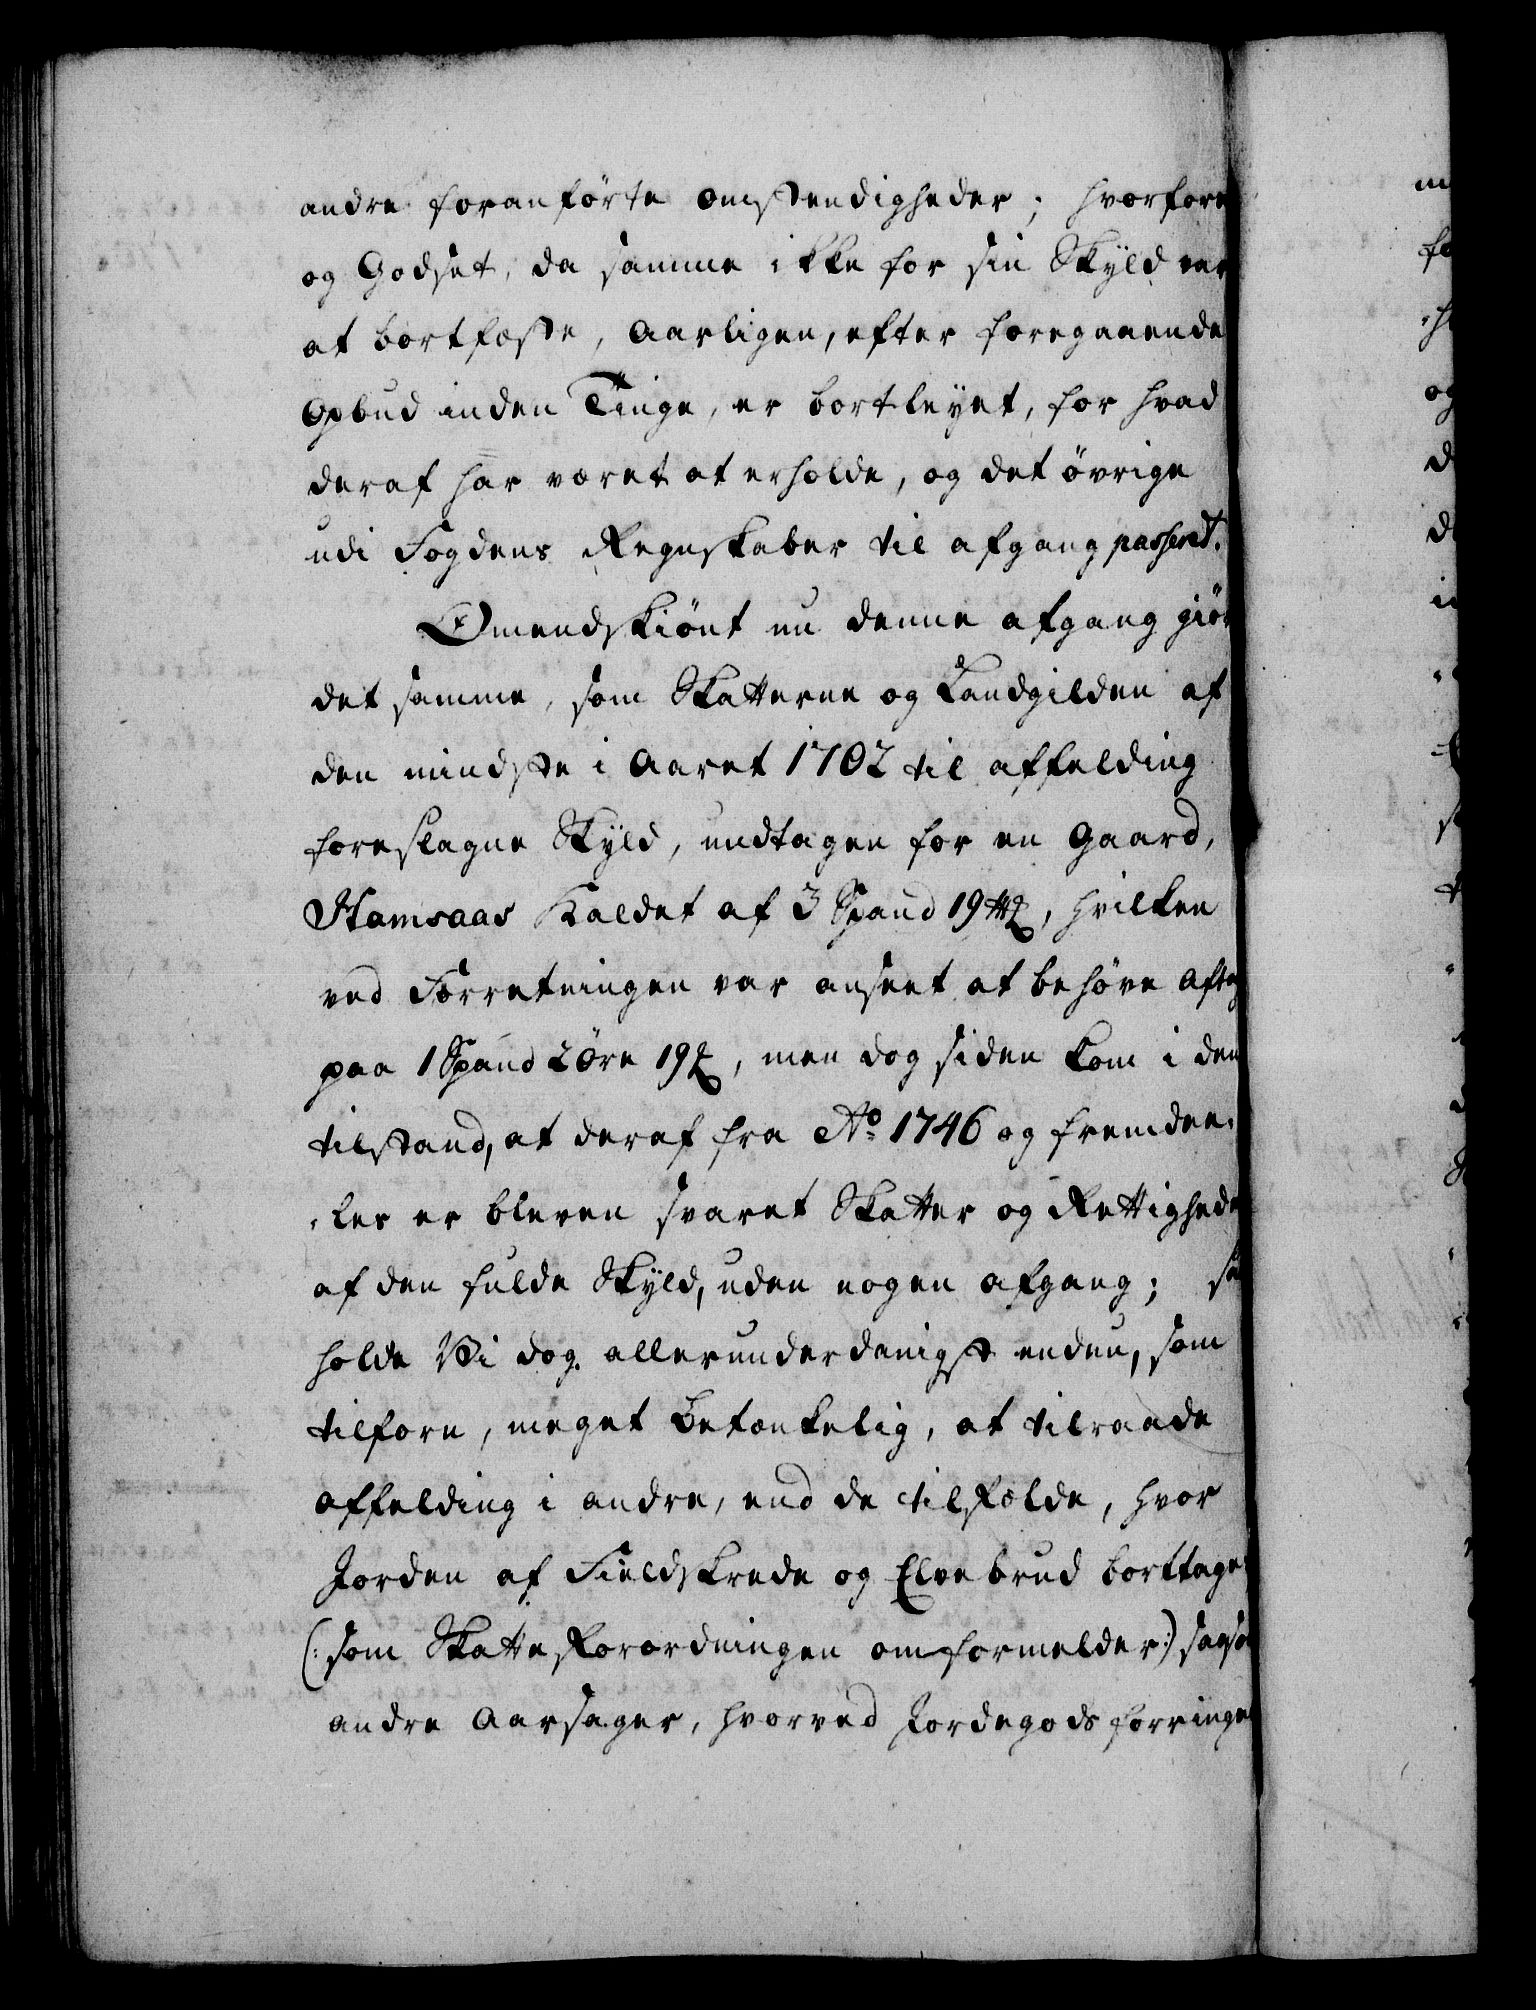 andre foranførte omstendigheder; hvorfore
og Godset, da samme ikke for sin Skyld var
at bortfæste, Aarligen, efter foregaaende
Opbud inden Tinge, er bortleyet, for hvad
deraf har været at erholde, og det øvrige
udi Fogdens Regnskaber til afgang passeret.
Omendskiønt nu denne afgang giør
det samme, som Skatterne og Landgilden af
den mindste i Aaret 1702 til affelding
foreslagne Skyld, undtagen for en Gaard,
Hamsaas Kaldet af 3 Spand 19 , hvilken
ved Forretningen var anseet at behøve Aftag
paa 1 Spand 2 Øre 19 , men dog siden kom i den
tilstand, at deraf fra Ao. 1746 og fremdee,
,les er bleven svaret Skatter og Rettighede
af den fulde Skyld, uden nogen afgang; saa
holde Vi dog allerunderdanigst endnu, som
tilforn, meget betænkelig, at tilraade
affelding i andre, end de tilfælde, hvor
Jorden af Fieldskrede og Elvebrud borttages
(: som Skatteforordningen omformelder :)
andre Aarsager, hvorved Jordegods forringes